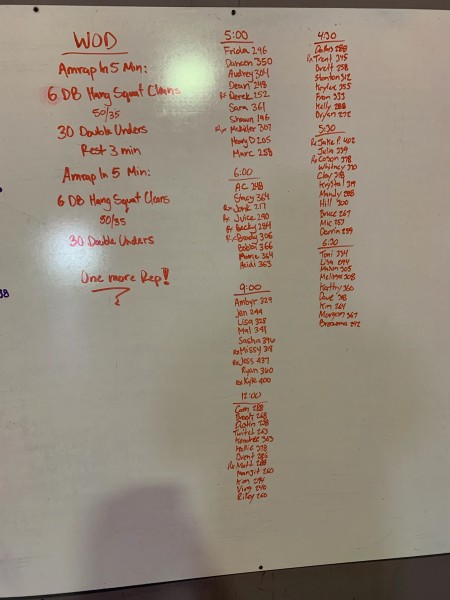 WOD
Amrap In 5 Min:
6 DB Hang Squat Cleans
50/35
30 Double Unders
Rest 3 min
Amrap In 5 Min:
6 DB Hang Squat Cleans
50/35
30 Double Unders
One more Rep!
5:00
Frida 296
Darreen 350
Audrey 304
Dean 248
Rx Derek 252
Sara 361
Shawn 196
307
Henry D 205
Marc 258
6:00
AC 248
Stacy 364
Rx 217
Rx Juice 290
Rx Becky 284
Rx Brady 306
Bobbi 366
Marie 364
Heidi 363
9:00
Ambyr 329
Jen 244
Lisa 328
Mal 341
Sasha 396
Rx Missy 318
Rx Jess 437
Ryan 360
Rx Kyle 400
12:00
Cam 288
Brook 268
Dustin 228
Twitch 263
363
Hollie 378
Brent 286
Rx Matt 288
Manjit 260
Kim 294
Ving 240
Riley 260
4:30
Dallas 288
Rx Trent 345
Brett 258
Stanton 312
Kylee 355
Fran 323
Kelly 288
Bryan 272
5:30
Rx Jake P. 402
Julia 339
Rx Carson 378
Whitney 330
Clay 218
Krystal 319
Mandy 288
Hill 300
Bruce 267
Mic 257
Darrin 259
6:30
Toni 334
Lisa 294
305
Melissa 308
Kathy 360
Dave 318
Kim 264
Morgan 367
Breanna 292
38